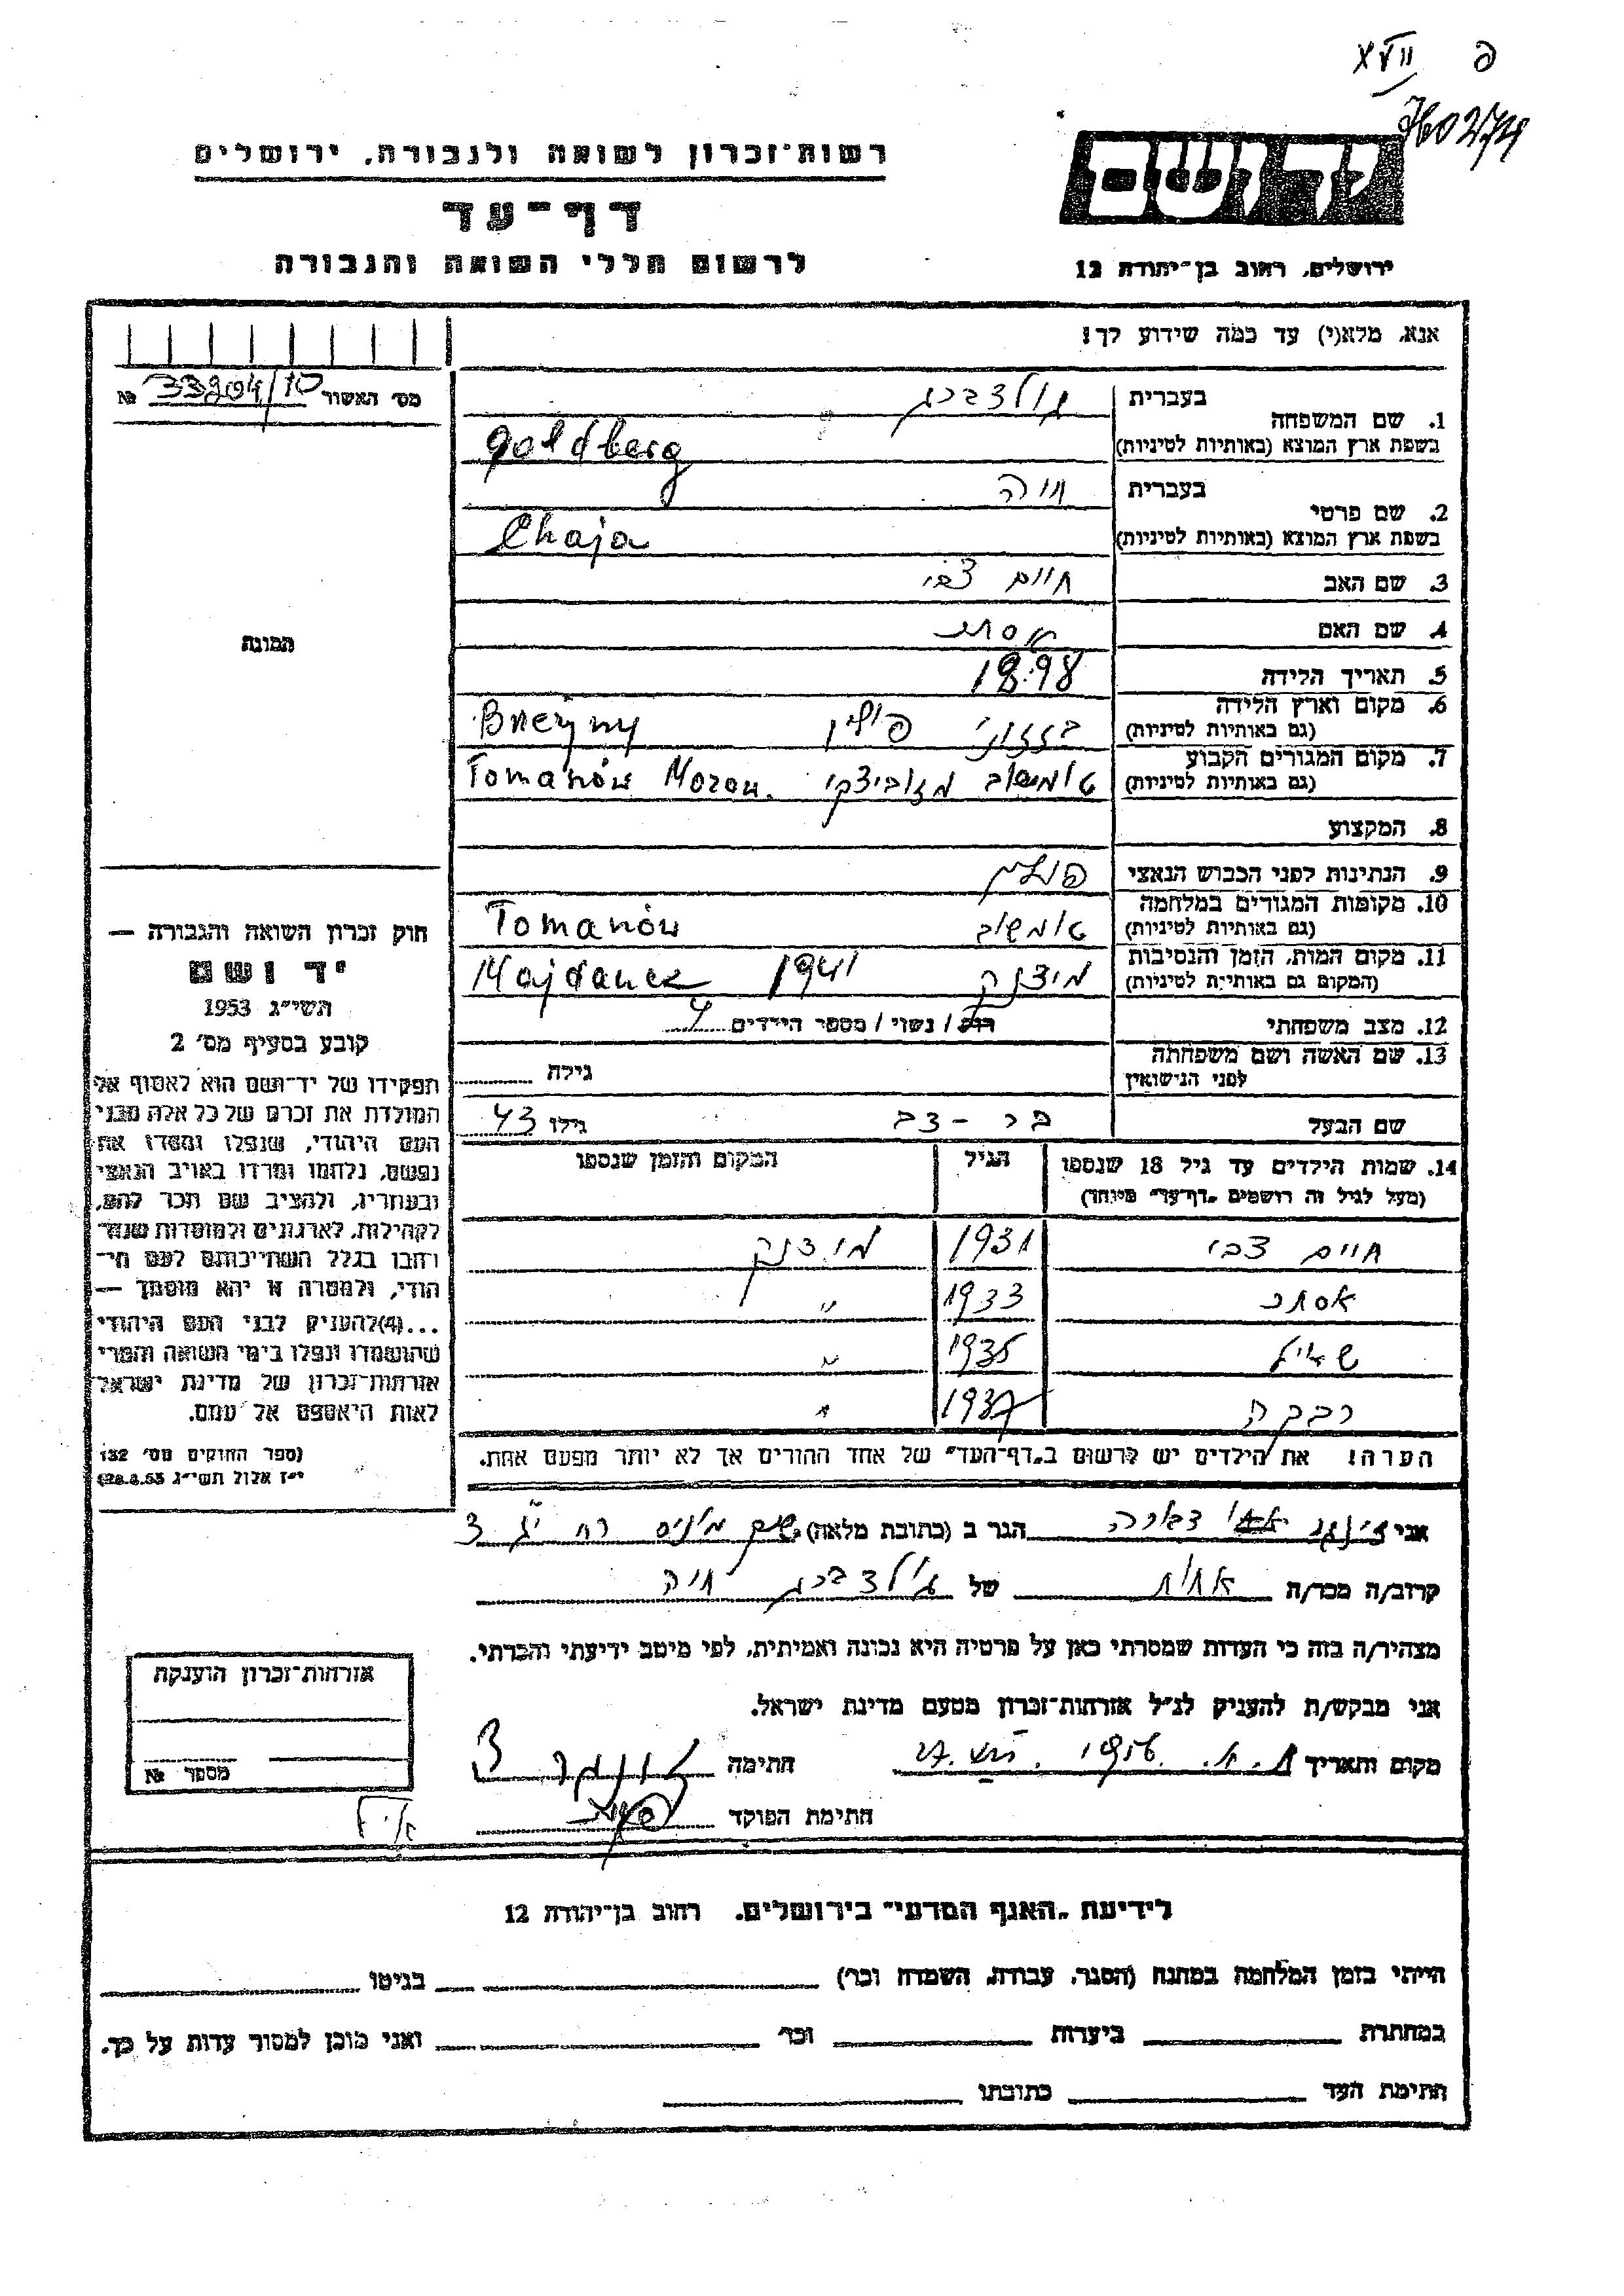 XVII פ
רשות-זכרון לשואה ולגבורה, ירושלים
דף-עד
לרשום חללי השואה והגבורה
יד ושם
ירושלים, רחוב בן-יהודה 12
אנא, מלא(י) עד כמה שידוע לך!
מס׳ האשור 33204/10 №
1. שם המשפחה בעברית גולדברג
בשפת ארץ המוצא (באותיות לטיניות) Goldberg
2. שם פרטי בעברית חיה
בשפת ארץ המוצא (באותיות לטיניות) Chaja
3. שם האב חיים צבי
4. שם האם
5. תאריך הלידה 1898
6. מקום וארץ הלידה (גם באותיות לטיניות) פולין
7. מקום המגורים הקבוע (גם באותיות לטיניות) מזוביצקי Tomanów Mazow.
8. המקצוע
9. הנתינות לפני הכבוש הנאצי פולנית
10. מקומות המגורים במלחמה (גם באותיות לטיניות) Tomanów
11. מקום המות, הזמן והנסיבות (המקום גם באותיות לטיניות) מידנק 1941 Majdanek
12. מצב משפחתי רווק / נשוי / מספר הילדים 4
13. שם האשה ושם משפחתה לפני הנישואין גילה
שם הבעל גילו 43
14. שמות הילדים עד גיל 18 שנספו הגיל המקום והזמן שנספו
(מעל לגיל זה רושמים „דף-עד״ מיוחד)
חיים צבי 1931 מידנק
אסתר 1933 ״
1935 ״
רבקה 1937 ״
הערה! את הילדים יש לרשום ב„דף-העד״ של אחד ההורים אך לא יותר מפעם אחת.
התמונה
חוק זכרון השואה והגבורה —
יד ושם
תשי״ג 1953
קובע בסעיף מס׳ 2
תפקידו של יד-ושם הוא לאסוף אל
המולדת את זכרם של כל אלה מבני
העם היהודי, שנפלו ומסרו את
נפשם, נלחמו ומרדו באויב הנאצי
ובעוזריו, ולהציב שם וזכר להם,
לקהילות, לארגונים ולמוסדות שנח-
רבו בגלל השתייכותם לעם הי-
הודי, ולמטרה זו יהא מוסמך —
...(4) להעניק לבני העם היהודי
שהושמדו ונפלו בימי השואה והמרי
אזרחות-זכרון של מדינת ישראל
לאות היאספם אל עמם.
(ספר החוקים מס׳ 132
י״ז אלול תשי״ג 28.8.53)
אני הגר ב (כתובת מלאה) 3
קרוב/ה מכר/ה אחות של גולדברג חיה
מצהיר/ה בזה כי העדות שמסרתי כאן על פרטיה היא נכונה ואמיתית, לפי מיטב ידיעתי והכרתי.
אני מבקש/ת להעניק לנ״ל אזרחות-זכרון מטעם מדינת ישראל.
מקום ותאריך 1956 חתימה
חתימת הפוקד
אזרחות-זכרון הוענקה
מספר №
לידיעת „האגף המדעי״ בירושלים, רחוב בן-יהודה 12
הייתי בזמן המלחמה במחנה (הסגר, עבודה, השמדה וכר׳) בגיטו
במחתרת ביערות וכר׳ ואני מוכן למסור עדות על כך.
חתימת העד כתובתו